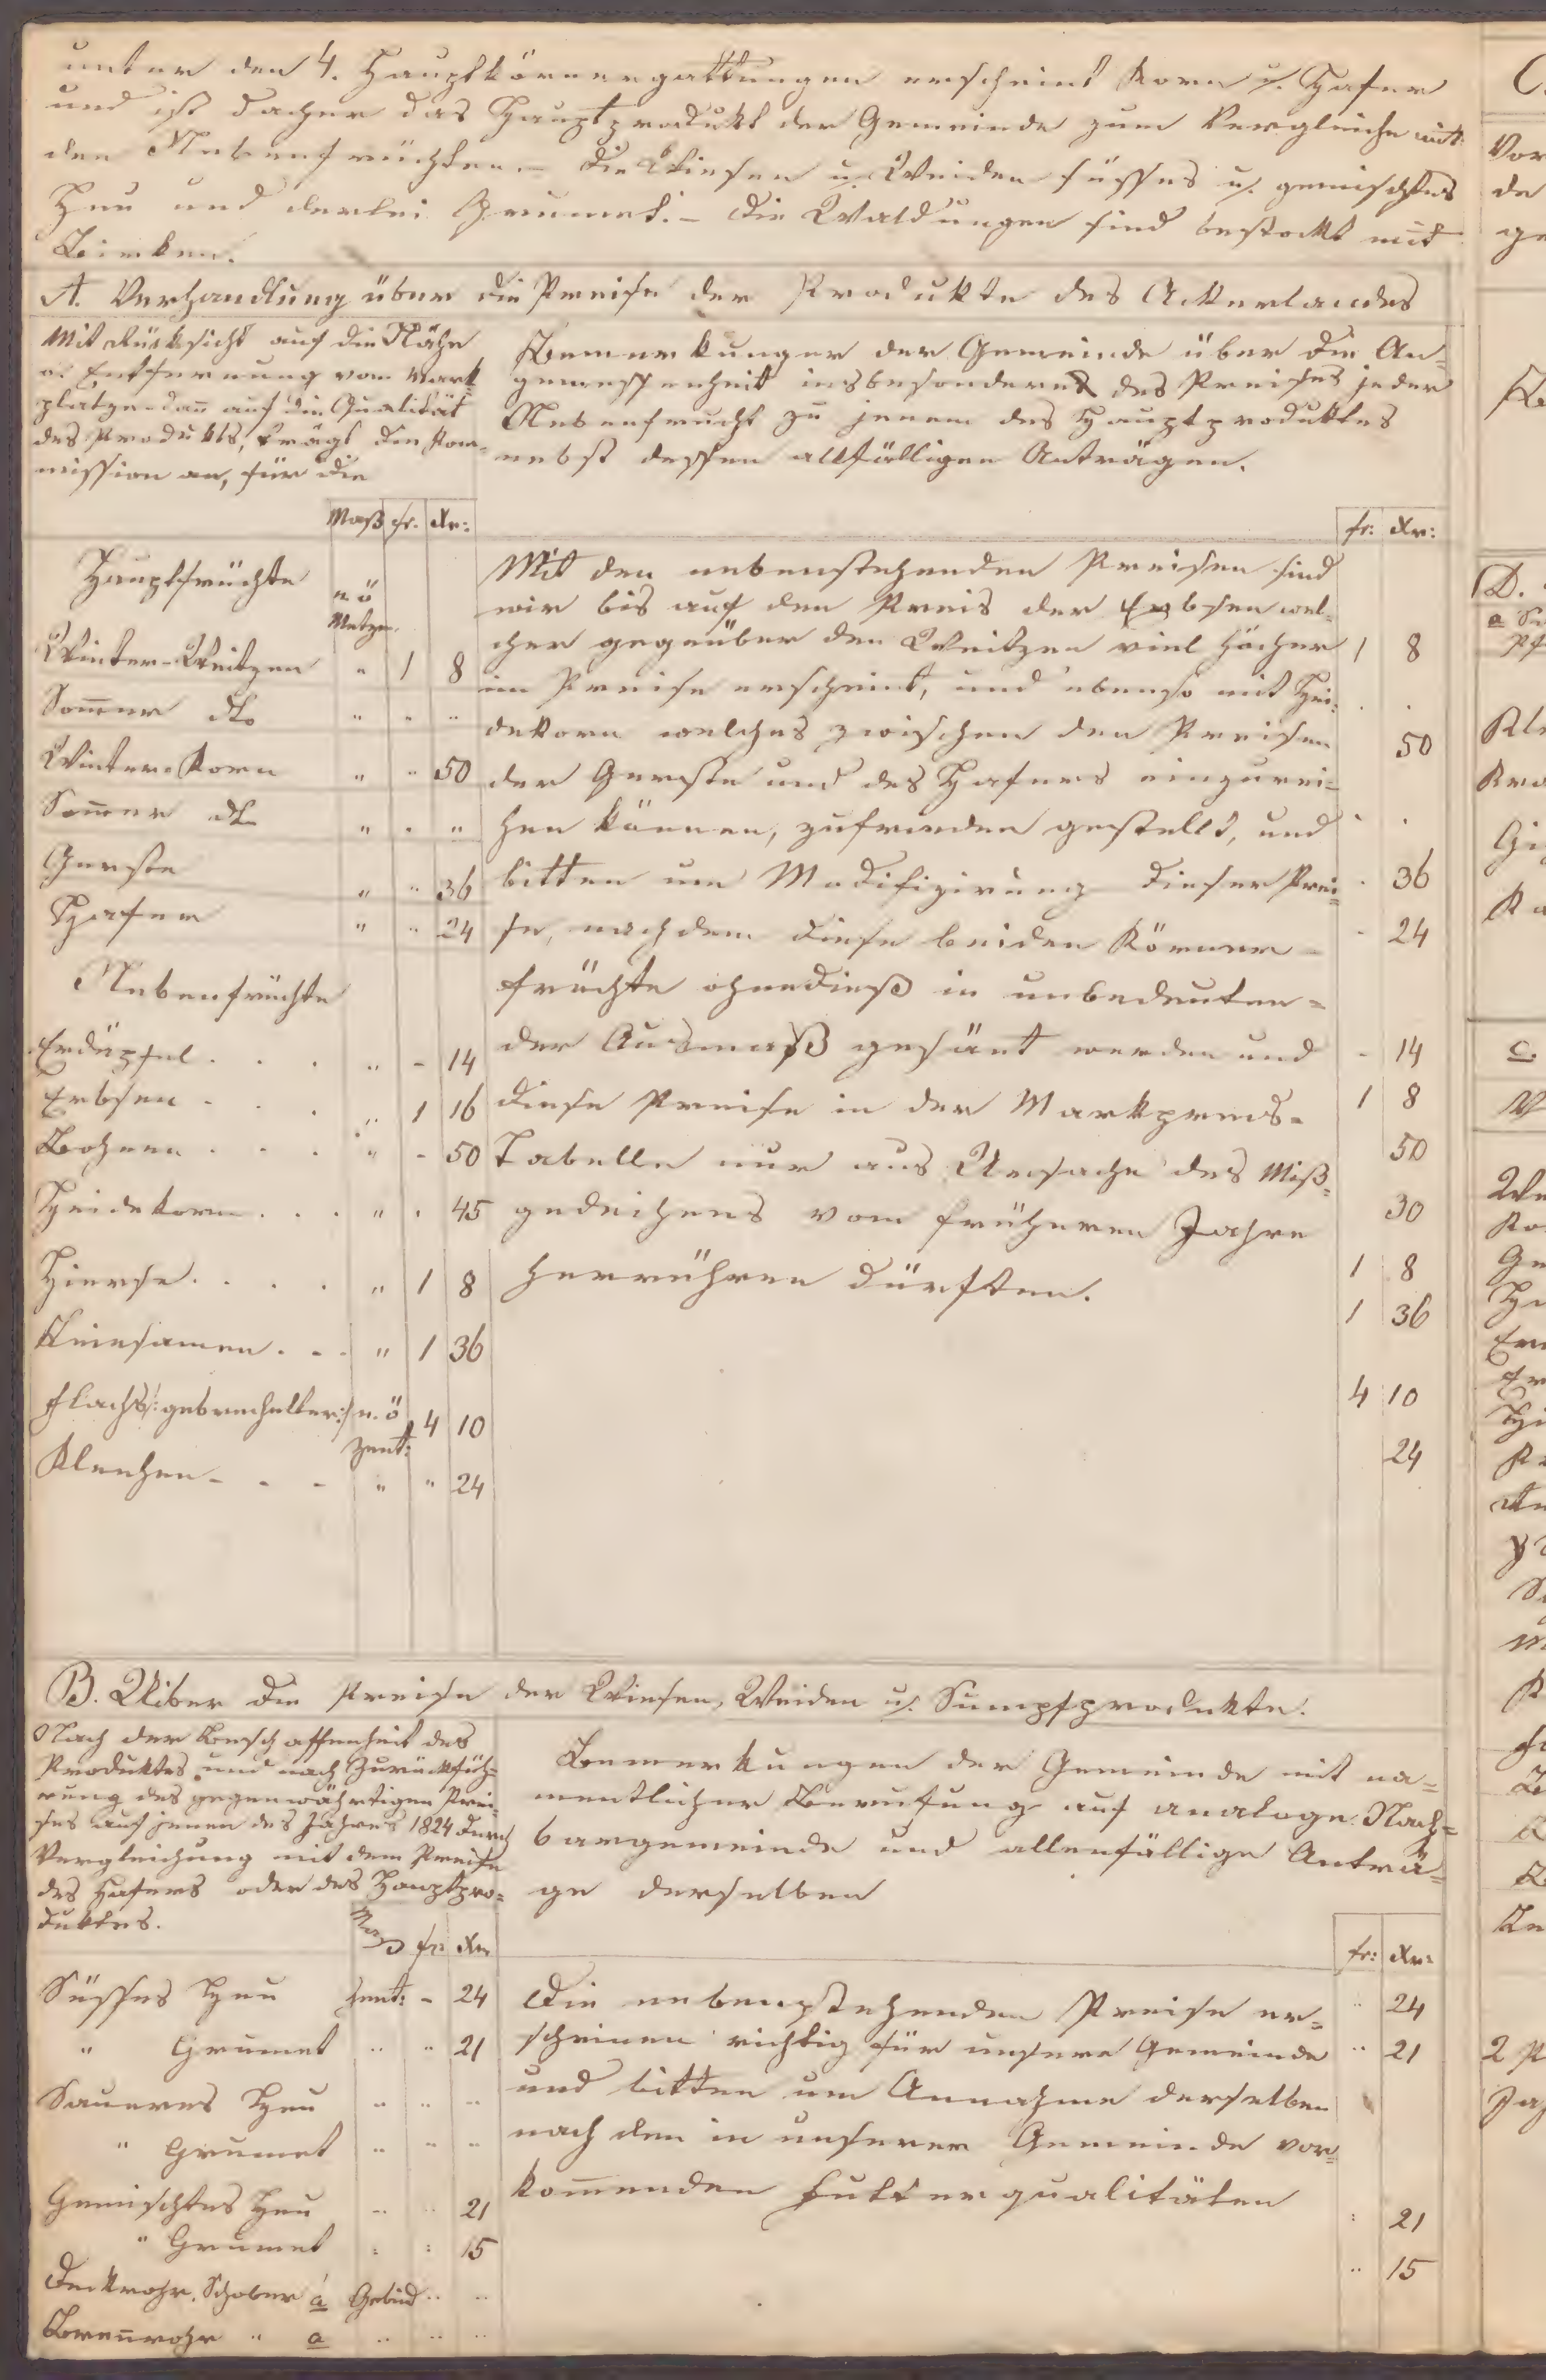 unter den 4. Hauptkörnergattungen erscheint Korn u. Hafer
und ist daher das Hauptprodukt der Gemeinde zum Vergleiche mit
den Nebenfrüchten. – Die Wiesen u. Weiden süsses u. gemischtes
Heu und derlei Grumet. – Die Waldungen sind bestockt mit
Birken.
A. Verhandlung über die Preise der Produkte des Ackerlandes
Mit Rücksicht auf die Nähe
u. Entfernung vom Mark
platze dañ auf die Qualität
des Produkts, trägt die Kom-
mission an, für die
Bemerkungen der Gemeinde über die An=
gemessenheit insbesondere des Preises jeder
Nebenfrucht zu jenem des Hauptproduktes
nebst dessen allfälligen Anträgen.
Maß fr. Xr:
fr: Xr:
Hauptfrüchte n. ö
Metzen
Winter-Weitzen " 1 8
Som̄er dto " " "
Winter-Korn " " 50
Som̄er dto " " "
Gerste " " 36
Hafer " " 24
Nebenfrüchte
Erdäpfel . . . " - 14
Erbsen - . . " 1 16
Bohnen . . . " - 50
Heidekorn . . . " . 45
Hierse . . . . " 1 8
Leinsamen . . . " 1 36
Flachs /: gebrechelter :/ n. ö Zent: 4 10
Kleeheu - - - " " 24
Mit den nebenstehenden Preisen sind
wir bis auf den Preis der Erbsen wel-
cher gegenüber den Weitzen viel höcher
im Preise erscheint, und ebenso mit Hei:
dekorn welches zwischen den Preisen
der Gerste und des Hafers einzurei=
hen können, zufrieden gestellt, und
bitten um Modifizirung dieser Prei=
se, nachdem diese beiden Körner -
früchte ohnedieß in unbedeuten=
der Ausmaß gesäet werden und
diese Preise in der Markpreis-
Tabelle nur aus Ursache des Miß=
gedeihens vom früheren Jahre
herrühren dürften.
1 8
. .
50
. .
. 36
- 24
- 14
1 8
50
30
1 8
1 36
4 10
24
B. Uiber die Preise der Wiesen, Weiden u. Sumpfprodukte.
Nach der Beschaffenheit des
Produktes und nach Zurückfüh=
rung des gegenwährtigen Prei=
ses auf jenen des Jahres 1824 durch
Vergleichung mit dem Preise
des Hafers oder des Hauptpro=
duktes.
Bemerkungen der Gemeinde mit na=
mentlicher Berufung auf analoge Nach=
bargemeinde und allenfällige Anträ=
ge derselben
Maß fr: Xr
fr: Xr:
Süsses Heu Zent: - 24
" Grumet " " 21
Saueres Heu " " "
" Grumet " " "
Gemischtes Heu " " 21
" Grumet : : 15
Deckrohr, Schober á Gebüd " "
Breñrohr " a " " "
Die nebenstehenden Preise er=
scheinen richtig für unsere Gemeinde
und bitten um Annahme derselben
nach den in unserer Gemeinde vor=
kom̄enden Futterqualitäten
" 24
" 21
: 21
" 15